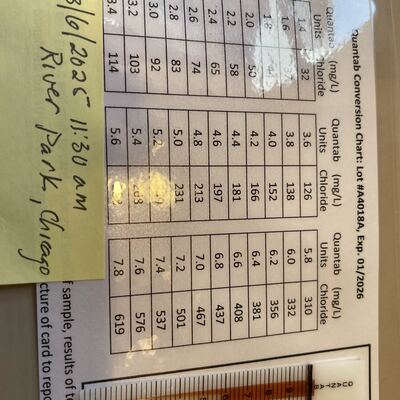 Quantab Conversion Chart: Lot #A4018A, Exp. 01/2026
Quantab (mg/L) Quantab (mg/L) Quantab (mg/L)
Units Chloride Units Chloride Units Chloride
1.4 32 3.6 126 5.8 310
1.6 3.8 138 6.0 332
1.8 4.0 152 6.2 356
2.0 50 4.2 166 6.4 381
2.2 58 4.4 181 6.6 408
2.4 65 4.6 197 6.8 437
2.6 74 4.8 213 7.0 467
2.8 83 5.0 231 7.2 501
3.0 92 5.2 7.4 537
3.2 103 5.4 7.6 576
3.4 114 5.6 7.8 619
f sample, results of te
cture of card to repo
QUANTAB
3/6/2025 11:30 am
River Park, Chicago